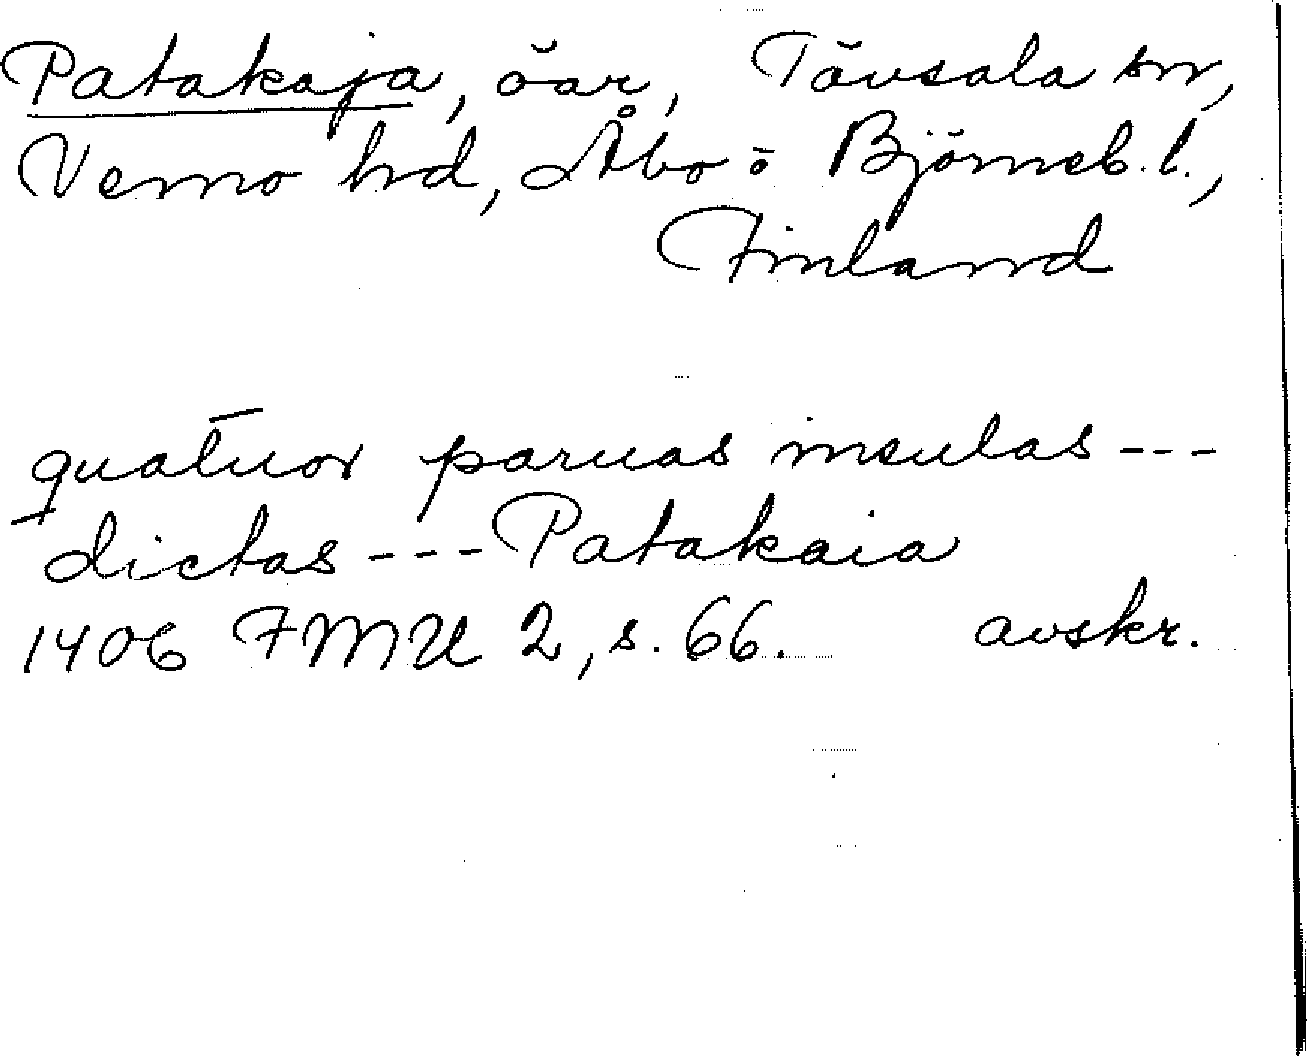 Patakaja, öar, Tövsala sn,
Vemo hd, Åbo o Björneb. l.,
Finland
quatuor paruas insulas ---
dictas --- Patakaia
1406 FMU 2, s. 66. avskr.